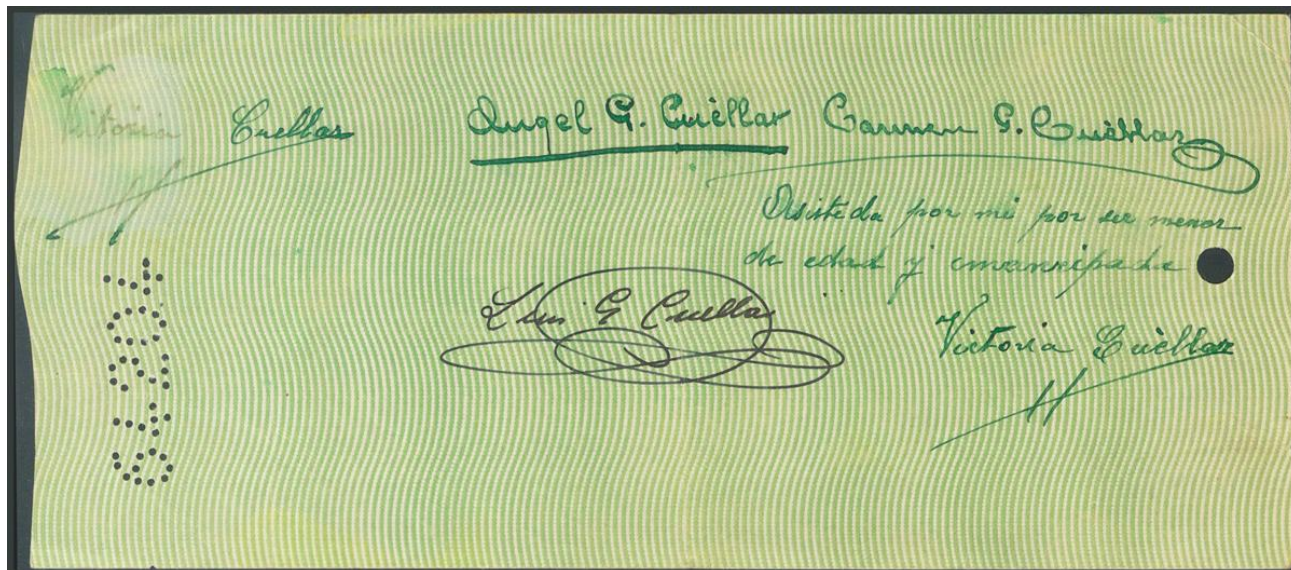 Vitoria Cuellar Angel G. Cuèllar Carmen G. Cuèllar
Asistida por mi por ser menor
de edad y emancipada
Luis G Cuellar
Victoria Cuèllar